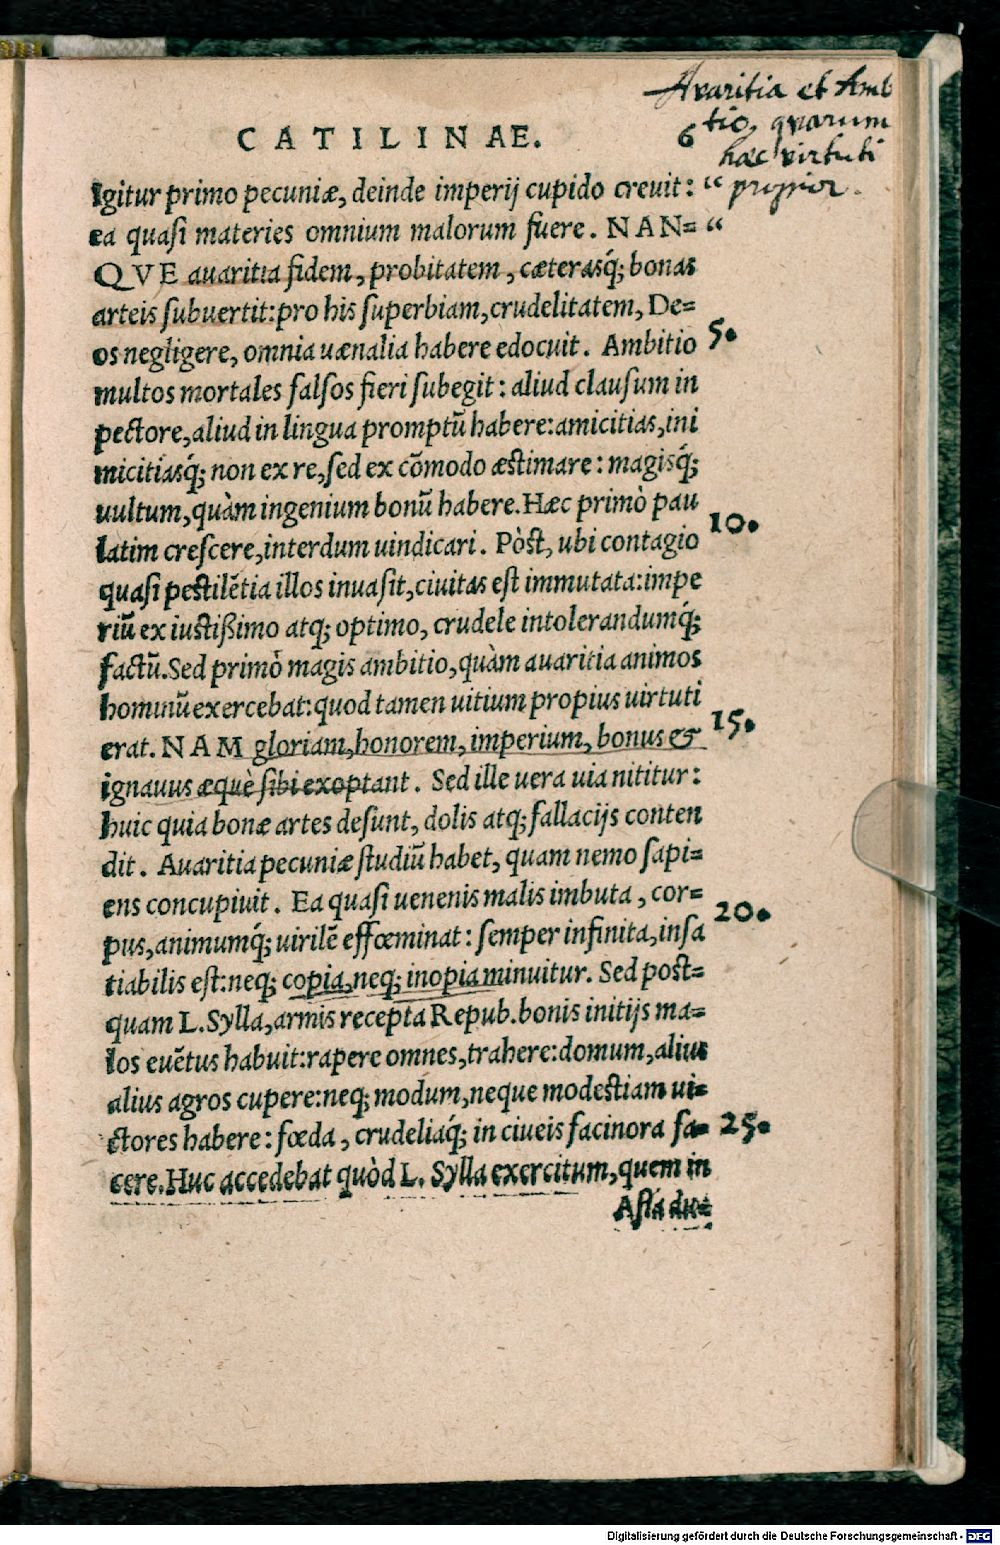 Avaritia et Amb
tio, qvarum
hæc virtuti
propior.
CATILINAE. 6
Igitur primo pecuniæ, deinde imperij cupido crevit: “
ea quasi materies omnium malorum fuere. NAN= “
QVE auaritia fidem, probitatem, cæterasq́; bonas
arteis subuertit: pro his superbiam, crudelitatem, De=
os negligere, omnia uænalia habere edocuit. Ambitio 5.
multos mortales falsos fieri subegit: aliud clausum in
pectore, aliud in lingua promptū habere: amicitias, ini
micitiasq́; non ex re, sed ex cōmodo æstimare: magisq́;
uultum, quàm ingenium bonū habere. Hæc primò pau
latim crescere, interdum uindicari. Pòst, ubi contagio 10.
quasi pestilētia illos inuasit, ciuitas est immutata: impe
riū ex iustißimo atq; optimo, crudele intolerandumq́;
factū. Sed primò magis ambitio, quàm auaritia animos
hominū exercebat: quod tamen uitium propius uirtuti
erat. NAM gloriam, honorem, imperium, bonus & 15.
ignauus æquè sibi exoptant. Sed ille uera uia nititur:
huic quia bonæ artes desunt, dolis atq; fallacijs conten
dit. Auaritia pecuniæ studiū habet, quam nemo sapi=
ens concupiuit. Ea quasi uenenis malis imbuta, cor=
pus, animumq́; uirilē effœminat: semper infinita, insa 20.
tiabilis est: neq; copia, neq; inopia minuitur. Sed post=
quam L. Sylla, armis recepta Repub. bonis initijs ma=
los euētus habuit: rapere omnes, trahere: domum, alius
alius agros cupere: neq; modum, neque modestiam ui=
ctores habere: fœda, crudeliaq́; in ciueis facinora fa= 25.
cere. Huc accedebat quòd L. Sylla exercitum, quem in
Asia du=
Digitalisierung gefördert durch die Deutsche Forschungsgemeinschaft - DFG